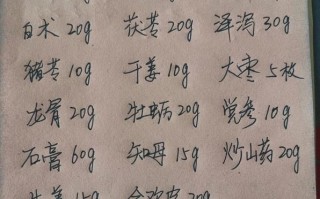 白术 20g 茯苓 20g 泽泻 30g
猪苓 10g 干姜 10g 大枣 5枚
龙骨 20g 牡蛎 20g 党参 10g
石膏 60g 知母 15g 炒山药 20g
15g 合欢皮 20g